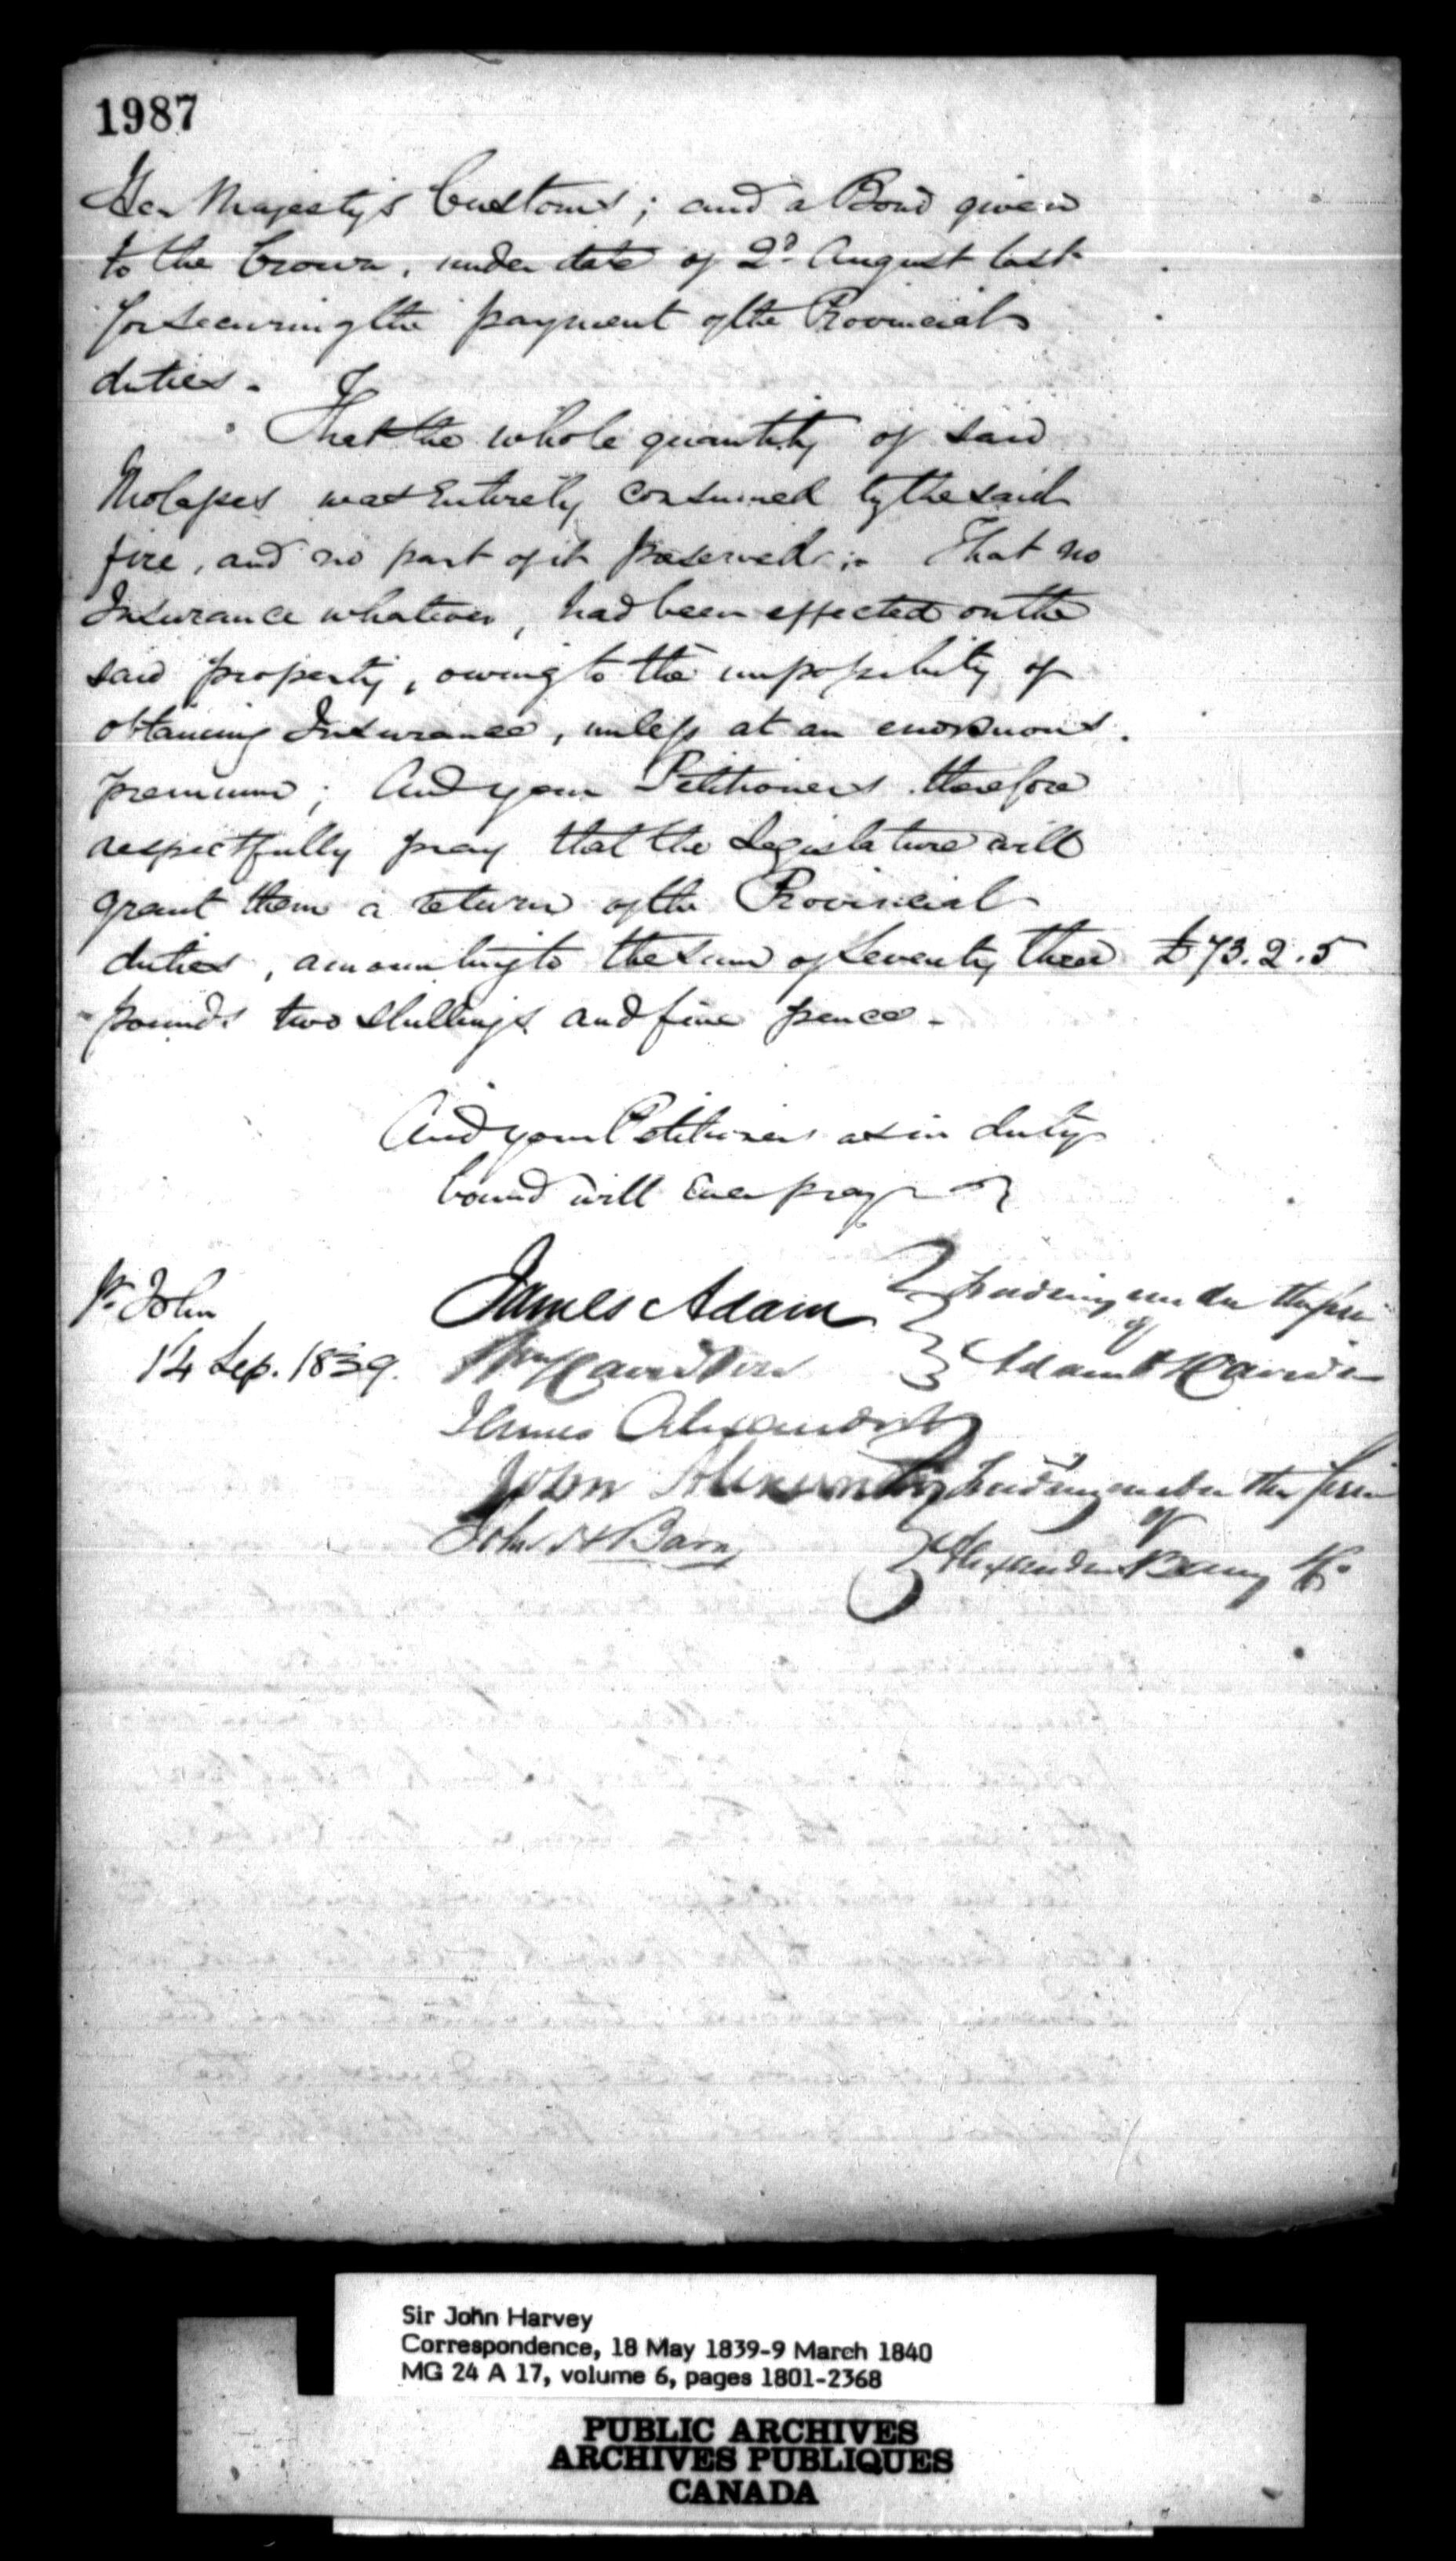 1987
Her Majesty's Customs; and a Bond given
to the Crown, under date of 2d. August last
for securing the payment of the Provincial
duties.
That the whole quantity of said
Molasses was Entirely consumed by the said
fire, and no part of it preserved; That no
Insurance whatever, had been effected on the
said property, owing to the impossibility of
obtaining Insurance, unless at an enormous
premium; And your Petitioners therefore
respectfully pray that the Legislature will
grant them a return of the Provincial
duties, amounting to the sum of Seventy three £73.2.5
pounds two shillings and five pence.
And your Petitioners as in duty
bound will Ever pray
St. John
14 Sep. 1839.
James Adam
Wm Davidson
James Alexander
John Alexander
John A Barry
trading under the firm
of
Adam & Davidson
trading under the firm
of
Alexander Barry & Co
Sir John Harvey
Correspondence, 18 May 1839-9 March 1840
MG 24 A 17, volume 6, pages 1801-2368
PUBLIC ARCHIVES
ARCHIVES PUBLIQUES
CANADA